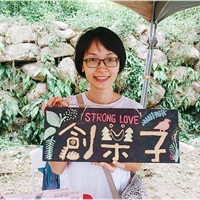 STRONG LOVE
創米子